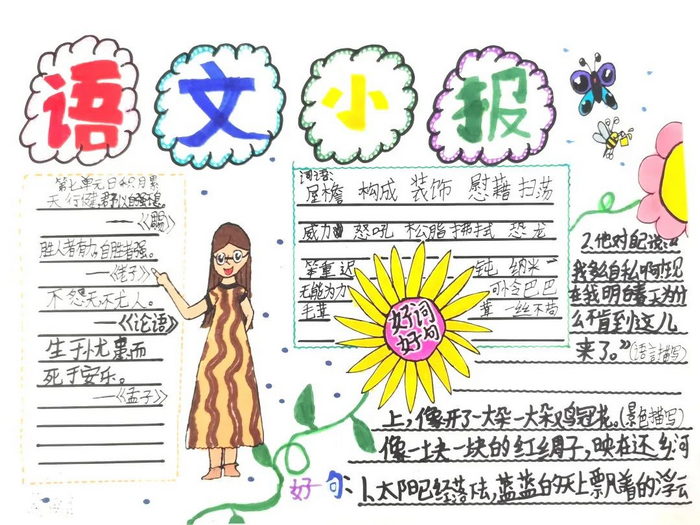 语文小报
第七单元日积月累
天行健,君子以自强不息。
胜人者有力,自胜者强。
——《老子》
不怨天,不尤人。
——《论语》
生于忧患而
死于安乐。
——《孟子》
词语:
屋檐 构成 装饰 慰藉 扫荡
威力 怒吼 松脂 拂拭 恐龙
笨重 迟 钝 纳米
无能为力 可怜巴巴
毛茸 茸 一丝不苟
好词
好句
2.他对自己说:“
我多自私啊!现
在我明白春天为什
么不肯到这儿
来了。”(语言描写)
上;像开了一大朵一大朵鸡冠花。(景色描写)
像一块一块的红绸子,映在还乡河
好句:1.太阳已经落下去,蓝蓝的天上飘着的浮云